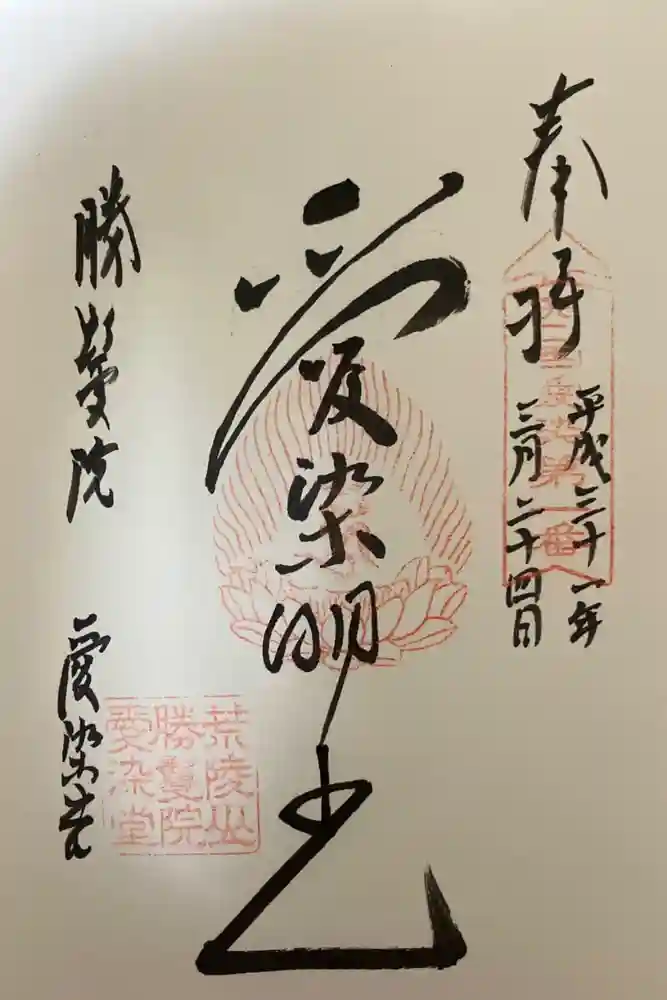 奉拝
平成三十一年
三月二十四日
第一番
愛染明王
荒陵山
勝鬘院
愛染堂
勝鬘院
愛染堂